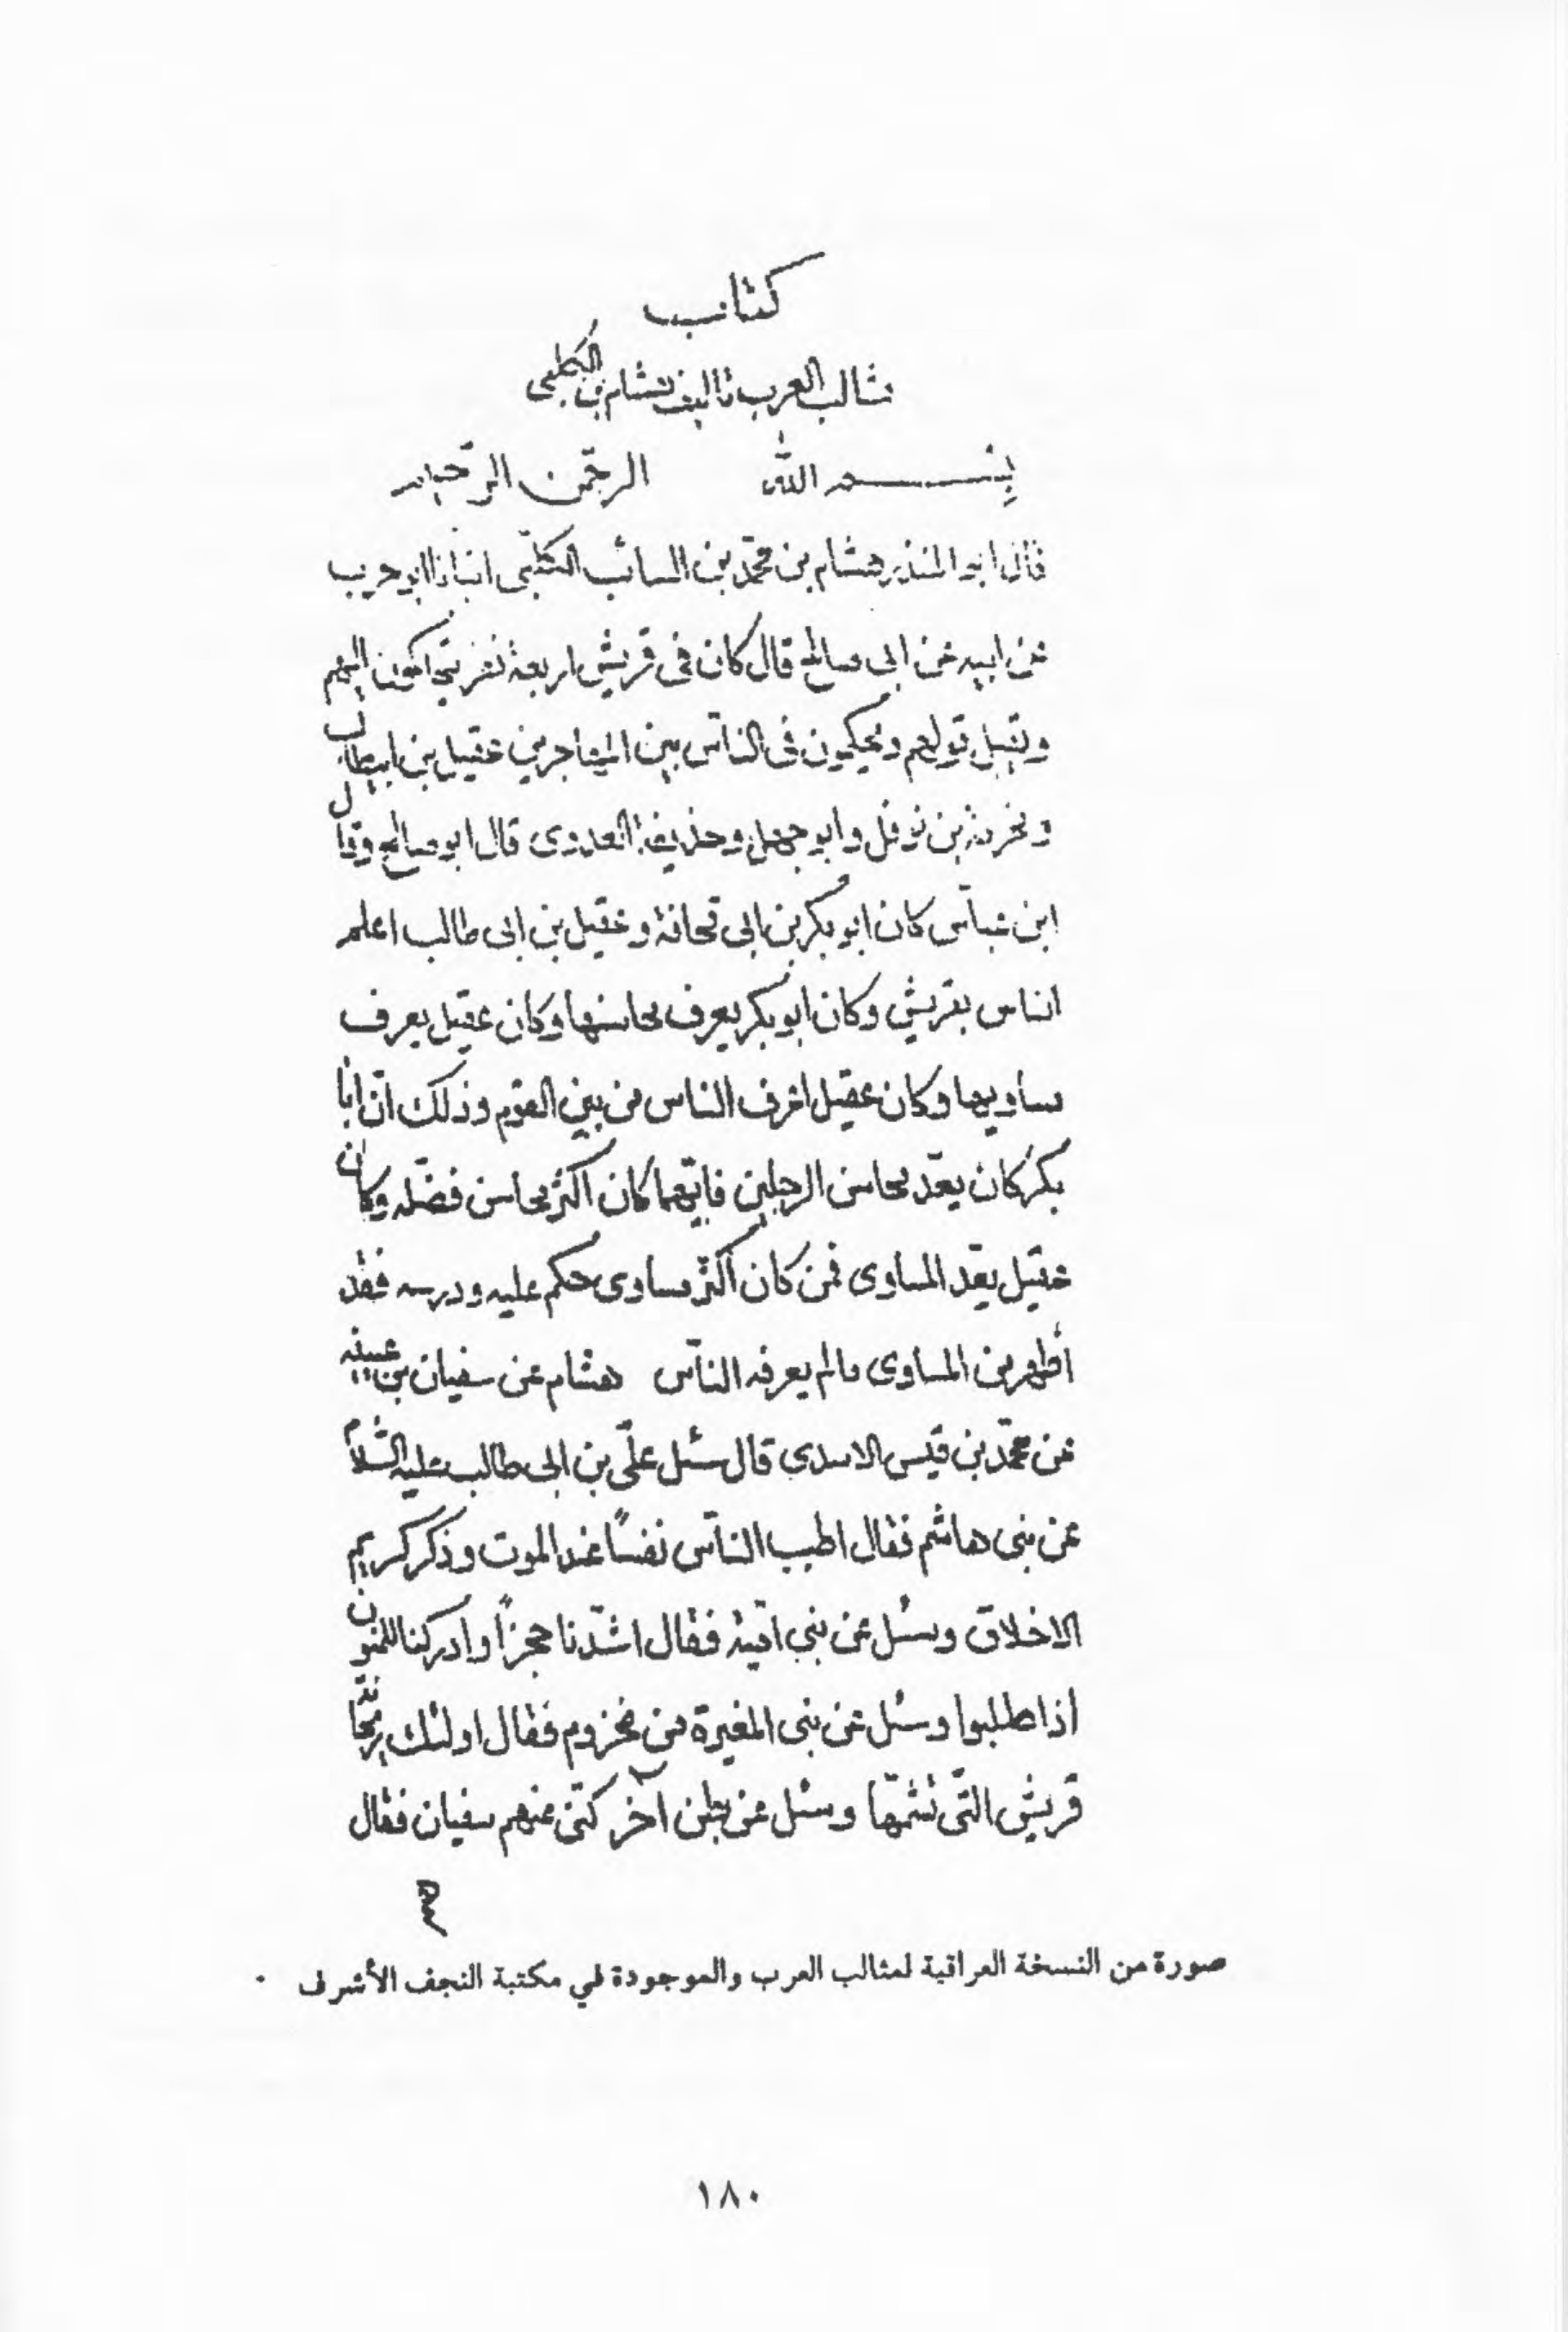 كتاب
مثالب العرب تاليف هشام بن الكلبى
بسم الله الرحمن الرحيم
قال ابو المنذر هشام بن محمّد بن السائب الكلبّى انبأنا ابو حرب
عن ابيه عن ابى صالح قال كان فى قريش اربعة نفر يتحاكمون اليهم
ويقبل قولهم ويحكمون فى الناّس بين المهاجرين عقيل بن ابيطالب
ومخرمة بن نوفل وابو جهل وحذيفة العدوى قال ابو صالح وقال
ابن عباّس كان ابو بكر بن ابى قحافة وعقيل بن ابى طالب اعلم
الناس بقريش وكان ابو بكر يعرف محاسنها وكان عقيل يعرف
مساويها وكان عقيل اعرف الناس من بين القوم وذلك انّ ابا
بكر كان يعدّ محاسن الرجلين فايّهما كان اكثر محاسن فضّله وكان
عقيل يعّد المساوى فمن كان اكثر مساوى حكم عليه ودرسه فقد
أظهر من المساوى مالم يعرفه الناّس هشام عن سفيان بن عيينه
عن محمّد بن قيس الاسدى قال سئل علّى بن ابى طالب عليه السّلام
عن بنى هاشم فقال اطيب الناّس نفسًا عند الموت وذكر كريم
الاخلاق وسئل عن بنى اميّة فقال اشدّنا حجزاً وادركنا للمنون
اذا طلبوا وسئل عن بنى المغيرة من مخزوم فقال اولئك
قريش التّى نشمّها وسئل عن بطن آخر كنّى عنهم سفيان فقال
صورة من النسخة العراقية لمثالب العرب والموجودة في مكتبة النجف الأشرف .
١٨٠